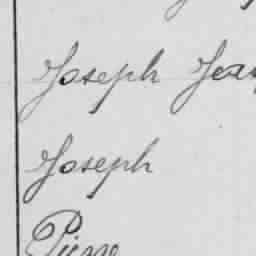 Joseph Jean
Joseph
Pierre